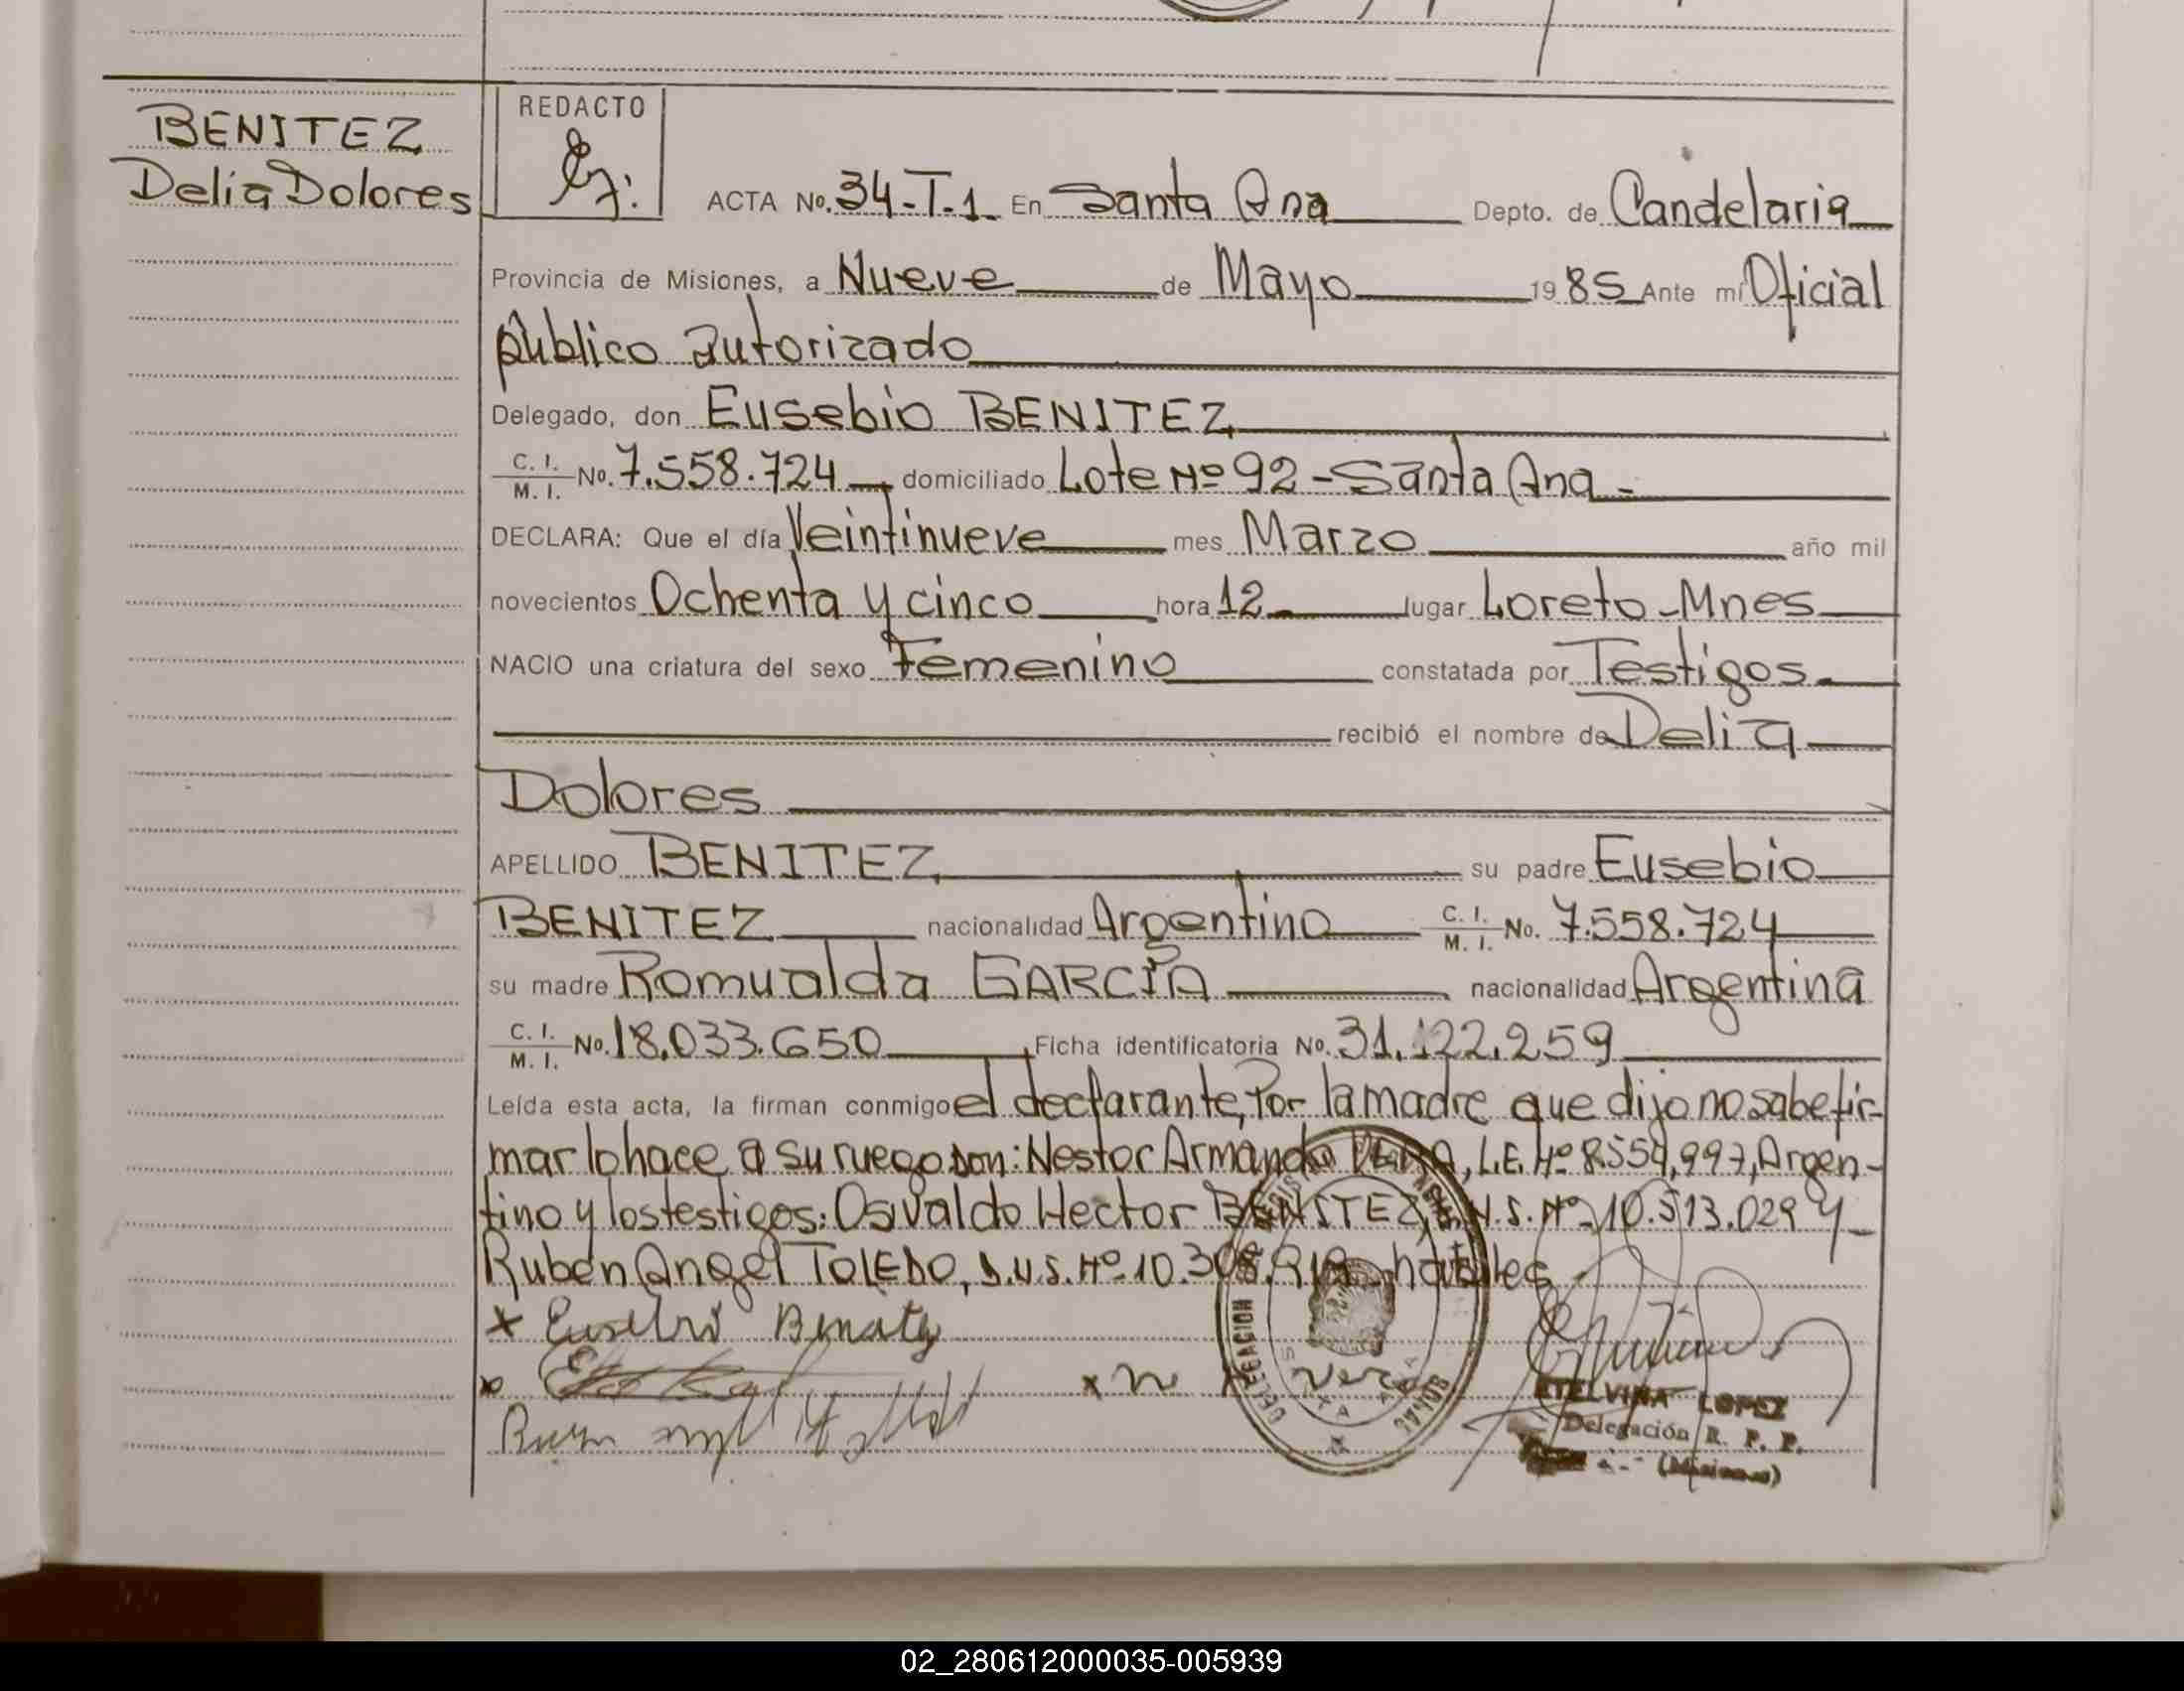 BENITEZ
Delia Dolores
REDACTO
ACTA No. 34-T.1. En Santa Ana Depto. de Candelaria
Provincia de Misiones, a Nueve de Mayo 1985 Ante mí Oficial
público autorizado
Delegado, don Eusebio BENITEZ
C. I. M. I. No. 7.558.724 domiciliado Lote Nº 92 - Santa Ana -
DECLARA: Que el día Veintinueve mes Marzo año mil
novecientos Ochenta y cinco hora 12 lugar Loreto - Mnes
NACIO una criatura del sexo Femenino constatada por Testigos.
recibió el nombre de Delia
Dolores
APELLIDO BENITEZ su padre Eusebio
BENITEZ nacionalidad Argentino C. I. M. I. No. 7.558.724
su madre Romualda GARCÍA nacionalidad Argentina
C. I. M. I. No. 18.033.650 Ficha identificatoria No. 31.122.259
Leída esta acta, la firman conmigo el declarante, Por la madre que dijo no sabe fir-
mar lo hace a su ruego Don: Nestor Armando, L.E. Nº 8.554,997, Argen-
tino y los testigos: Osvaldo Hector BENITEZ, D.N.S. Nº 10.513.029 y
Ruben Angel TOLEDO, D.N.S. Nº 10.308. habiles
x Eusebio Benitez
x
DELEGACION
ETELVINA LOPEZ
Delegación R. P. P.
(Misiones)
02_280612000035-005939